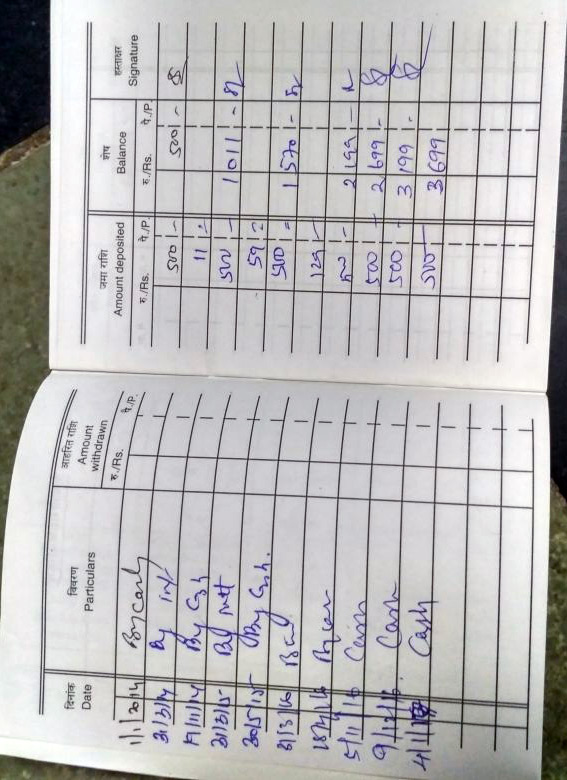 दिनांक
Date
विवरण
Particulars
आहरित राशि
Amount
withdrawn
रु./Rs. पै./P.
जमा राशि
Amount deposited
रु./Rs. पै./P.
शेष
Balance
रु./Rs. पै./P.
हस्ताक्षर
Signature
1/1/2014 By cash 500 - 500 -
31/3/14 By int 11 =
19/11/14 By Csh 500 - 1011 -
31/3/15 By intt 59 =
30/5/15 By Csh. 500 = 1570 -
31/3/16 129 -
500 - 2199 -
5/11/16 Cash 500 - 2699 -
9/12/16. Cash 500 - 3199 -
Cash 500 - 3699